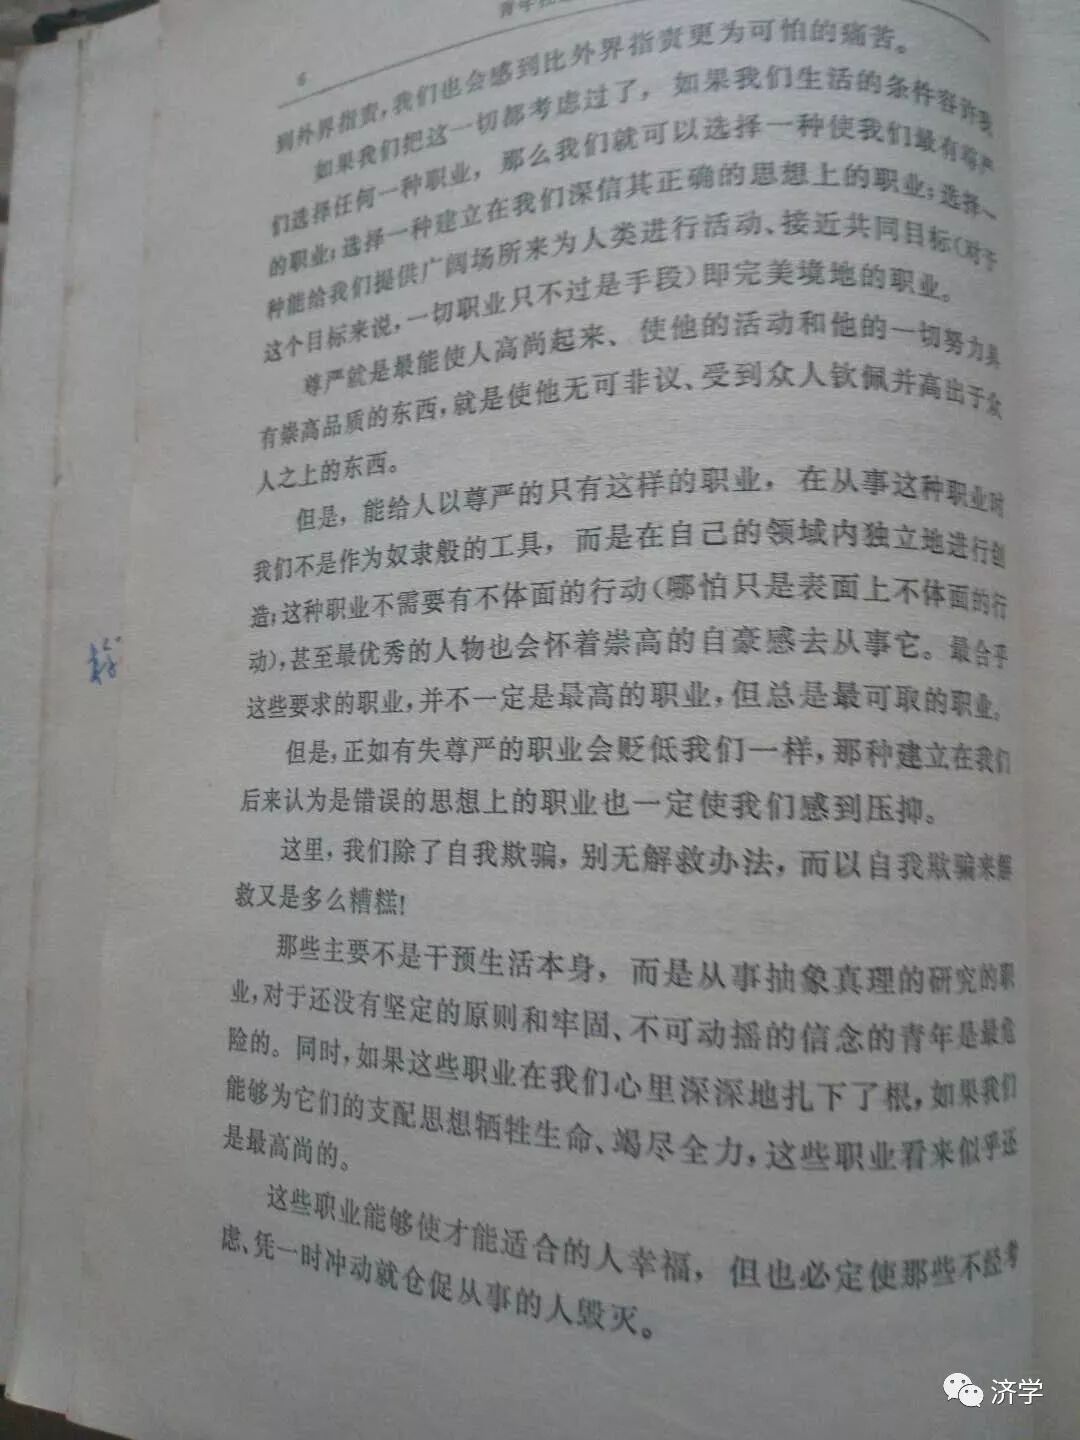 6
到外界指责，我们也会感到比外界指责更为可怕的痛苦。
如果我们把这一切都考虑过了，如果我们生活的条件容许我
们选择任何一种职业，那么我们就可以选择一种使我们最有尊严
的职业；选择一种建立在我们深信其正确的思想上的职业；选择一
种能给我们提供广阔场所来为人类进行活动、接近共同目标（对于
这个目标来说，一切职业只不过是手段）即完美境地的职业。
尊严就是最能使人高尚起来、使他的活动和他的一切努力具
有崇高品质的东西，就是使他无可非议、受到众人钦佩并高出于众
人之上的东西。
但是，能给人以尊严的只有这样的职业，在从事这种职业时
我们不是作为奴隶般的工具，而是在自己的领域内独立地进行创
造；这种职业不需要有不体面的行动（哪怕只是表面上不体面的行
动），甚至最优秀的人物也会怀着崇高的自豪感去从事它。最合乎
这些要求的职业，并不一定是最高的职业，但总是最可取的职业。
但是，正如有失尊严的职业会贬低我们一样，那种建立在我们
后来认为是错误的思想上的职业也一定使我们感到压抑。
这里，我们除了自我欺骗，别无解救办法，而以自我欺骗来解
救又是多么糟糕！
那些主要不是干预生活本身，而是从事抽象真理的研究的职
业，对于还没有坚定的原则和牢固、不可动摇的信念的青年是最危
险的。同时，如果这些职业在我们心里深深地扎下了根，如果我们
能够为它们的支配思想牺牲生命、竭尽全力，这些职业看来似乎还
是最高尚的。
这些职业能够使才能适合的人幸福，但也必定使那些不经考
虑、凭一时冲动就仓促从事的人毁灭。
济学